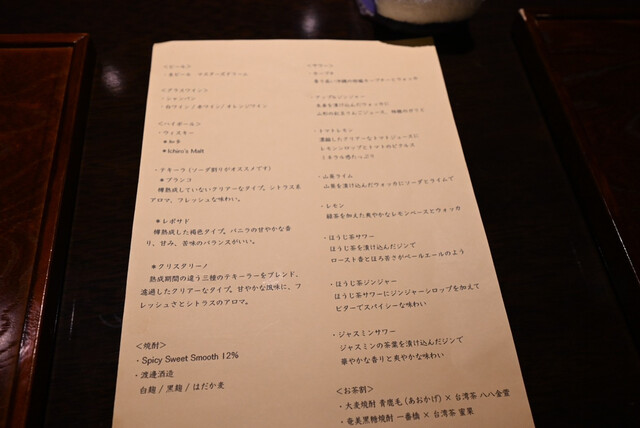 <ビール>
・生ビール マスターズドリーム
<グラスワイン>
・シャンパン
・白ワイン / 赤ワイン / オレンジワイン
<ハイボール>
・ウィスキー
＊知多
＊Ichiro's Malt
・テキーラ (ソーダ割りがオススメです)
＊ブランコ
樽熟成していないクリアーなタイプ。シトラス系
アロマ、フレッシュな味わい。
＊レポサド
樽熟成した褐色タイプ。バニラの甘やかな香
り、甘み、苦味のバランスがいい。
＊クリスタリーノ
熟成期間の違う三種のテキーラーをブレンド、
濾過したクリアーなタイプ。甘やかな風味に、フ
レッシュさとシトラスのアロマ。
<焼酎>
・Spicy Sweet Smooth 12%
・渡邊酒造
白麹 / 黒麹 / はだか麦
<サワー>
・アップルジンジャー
生姜を漬け込んだウォッカに
・トマトレモン
濃縮したクリアーなトマトジュースに
レモンシロップとトマトのピクルス
ミネラル感たっぷり
・山椒ライム
山椒を漬け込んだウォッカにソーダとライムで
・レモン
緑茶を加えた爽やかなレモンベースとウォッカ
・ほうじ茶サワー
ほうじ茶を漬け込んだジンで
ロースト香とほろ苦さがペールエールのよう
・ほうじ茶ジンジャー
ほうじ茶サワーにジンジャーシロップを加えて
ビターでスパイシーな味わい
・ジャスミンサワー
ジャスミンの茶葉を漬け込んだジンで
華やかな香りと爽やかな味わい
<お茶割>
・大麦焼酎 青鹿毛 (あおかげ) × 台湾茶 八八金萱
・奄美黒糖焼酎 一番橋 × 台湾茶 蜜菓